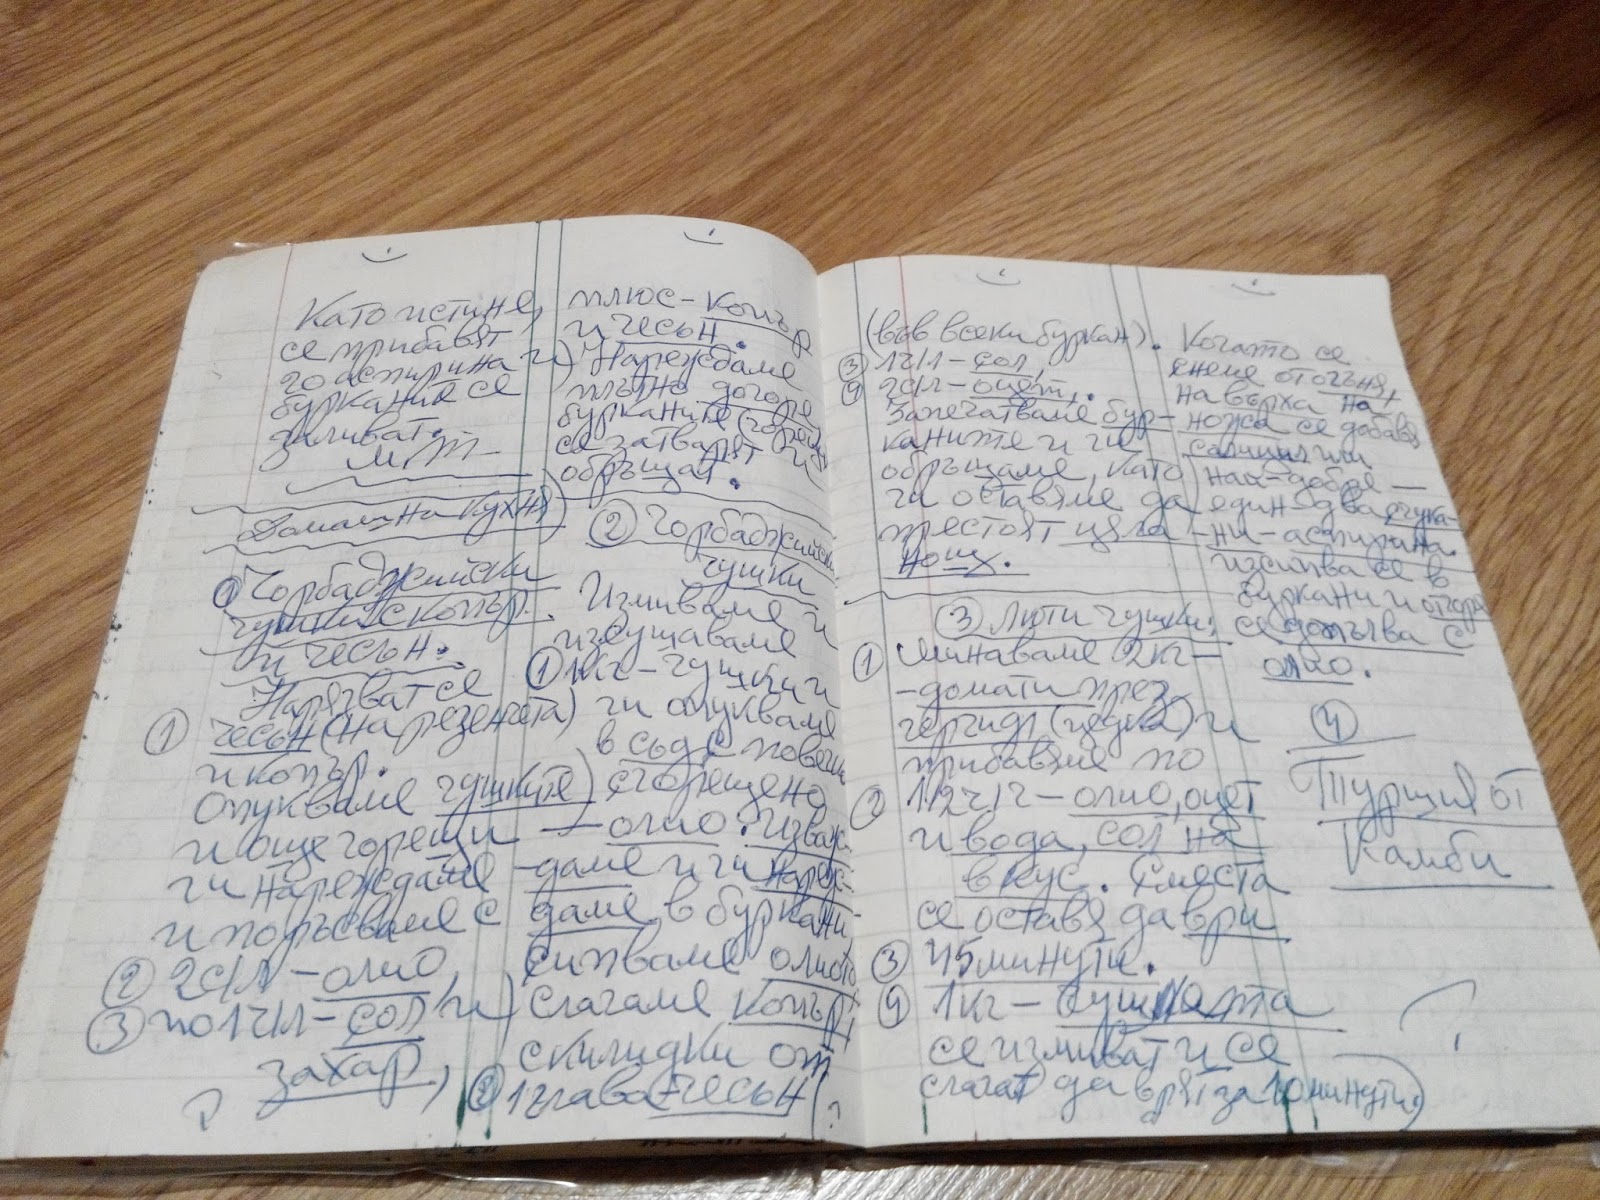 Като истине,
се прибавят
10 аспирина и
бурканите се
заливат.
МТ
Домашна кухня
① Чорбаджийски
чушки с копър
и чесън.
Нарязват се
① чесън (на резенчета)
и копър.
Опукваме чушките
и още горещи
ги нареждаме
и поръсваме с
② 2с/л – олио,
③ по 1ч/л – сол и
захар,
плюс – копър
и чесън.
Нареждаме
плътно догоре
бурканите (горещи)
се затварят и
обръщат.
② Чорбаджийски
чушки
Измиваме и
изсушаваме
① 1кг – чушки и
ги опукваме
в съд с повече
сгорещено
– олио. Изваж-
даме и ги нареж-
даме в буркани
сипваме олиото
слагаме копър,
скилидки от
② 1 глава – чесън
(във всеки буркан).
③ 1ч/л – сол,
④ 2с/л – оцет.
Запечатваме бур-
каните и ги
обръщаме, като
ги оставяме да
престоят цяла
нощ.
③ Люти чушки.
① Смиламе 2кг –
– домати през
гергидр (цедка) и
прибавяме по
② 1/2ч/ч – олио, оцет
и вода, сол на
вкус. Сместа
се оставя да ври
③ 45 минути.
④ 1кг – чушлета
се измиват и се
слагат да врят за 10 минути.
Когато се
снеме от огъня,
на върха на
ножа се добавя
салицил или
най-добре –
един-два счука-
ни – аспирина.
Изсипва се в
буркани и отгоре
се допълва с
олио.
④
Туршия от
Камби